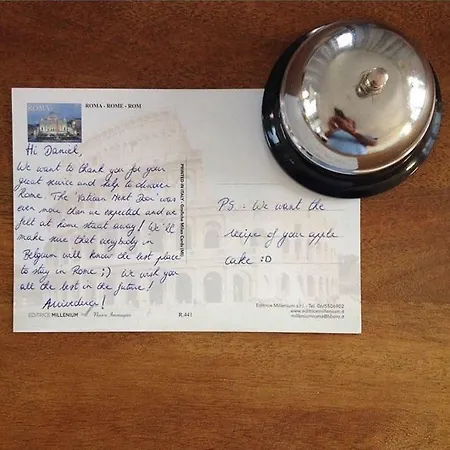 ROMA
ROMA - ROME - ROM
Hi Daniel,
We want to thank you for your
great service and help to discover
Rome. The Vatican Next Door was
even more than we expected and we
felt at home straat away! We'll
make sure that everybody in
Belgium will know the best place
to stay in Rome ;) We wish you
all the best in the future!
Arrivederci!
EDITRICE MILLENIUM
R.441
PRINTED IN ITALY
PS: We want the
recipe of your apple
cake :D
Editrice Millenium s.r.l. - Tel.
www.editricemillenium.it